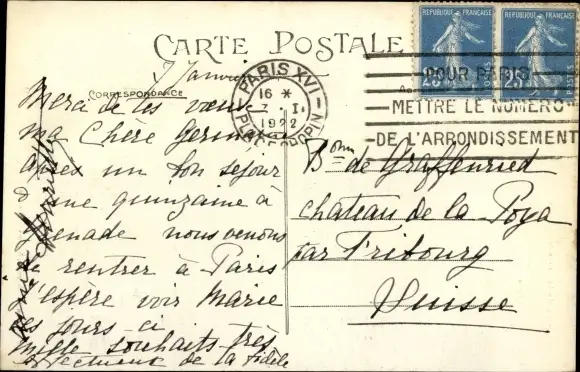 CARTE POSTALE
CORRESPONDANCE
7 Janvier
Merci de tes vœux
ma Chère Germaine
après un bon séjour
d'une quinzaine à
Grenade nous venons
de rentrer à Paris
J'espère voir Marie
ces jours-ci
Mille souhaits très
affectueux de la fidèle
REPUBLIQUE FRANÇAISE
25
REPUBLIQUE FRANÇAISE
25
PARIS XVI
16 *
7 - I
1922
PLACE CHOPIN
POUR PARIS
METTRE LE NUMERO
DE L'ARRONDISSEMENT
Bonne de Graffenried
château de la Poya
par Fribourg
Suisse